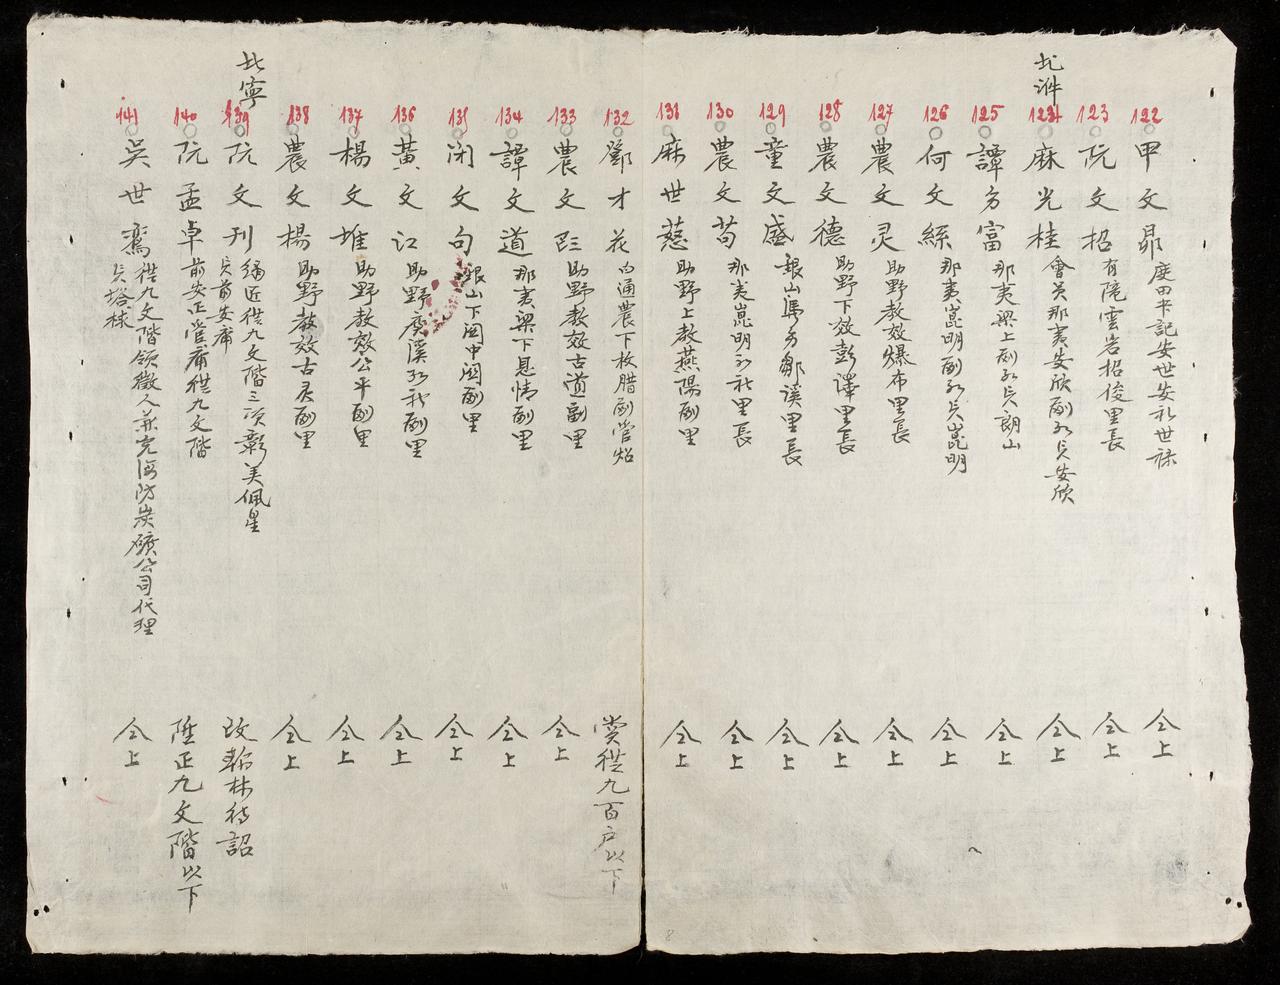 122
甲文昴 庭田卞記安世安礼世禄 仝上
北泮
123
阮文招 有院雲岩招俊里長 仝上
124
麻光桂 會員那夷安欣副 貝安欣 仝上
125
譚方富 那夷梁上副 貝朗山 仝上
126
何文絲 那夷崑明副 貝崑明 仝上
127
農文灵 助野教效爆布里長 仝上
128
農文德 助野下效彭譚里長 仝上
129
童文盛 銀山 鄒溪里長 仝上
130
農文苟 那夷崑明 社里長 仝上
131
麻世慈 助野上教燕陽副里 仝上
132
鄧才花 白通農下枚腊副管 賞從九百戶以下
133
農文 助野教效古道副里 仝上
134
譚文道 那夷梁下息情副里 仝上
135
闭文句 銀山下閣中閣副里 仝上
136
黃文江 助野廣溪 副里 仝上
137
楊文堆 助野教效公平副里 仝上
138
農文楊 助野教效古灵副里 仝上
北寧
139
阮文刊 繡匠從九文階三項彰美佩星
貝首安庯 改翰林待詔
140
阮孟卓 前安正管庯從九文階 陞正九文階以下
141
吳世鸞 從九文階領徵人兼充海防炭礦公司代理
貝塔梂 仝上
8